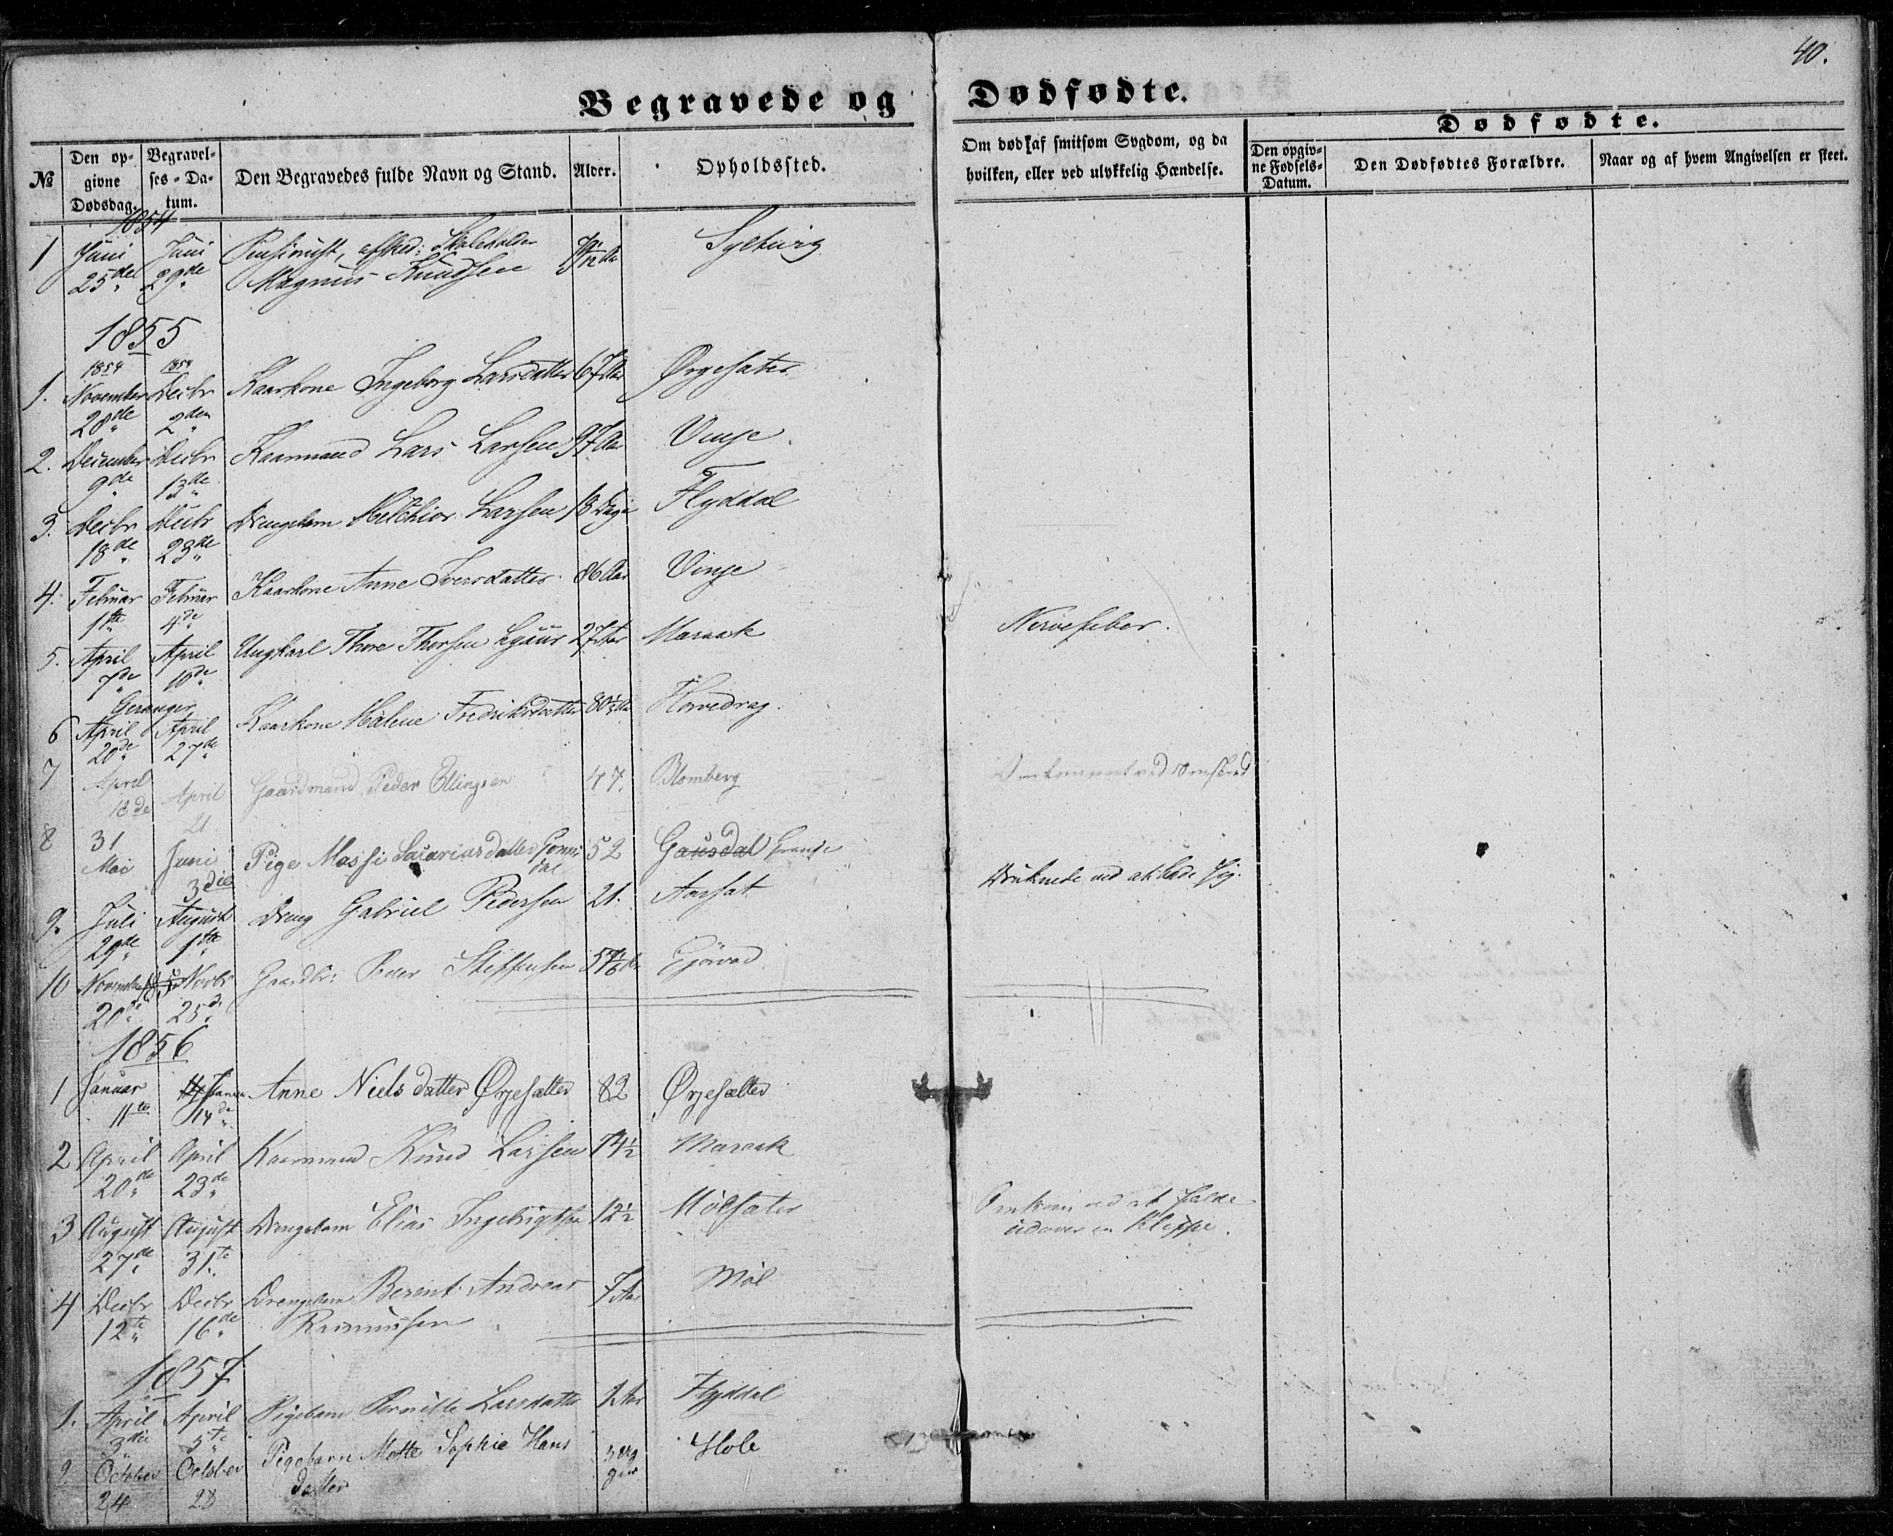 40.
Begravede og Dødfødte.
№ Den opgivne Dødsdag. Begravelses-Datum. Den Begravedes fulde Navn og Stand. Alder. Opholdssted. Om død af smitsom Sygdom, og da hvilken, eller ved ulykkelig Hændelse.
Dødfødte.
Den opgivne Fødsels-Datum. Den Dødfødtes Forældre. Naar og af hvem Angivelsen er skeet.
1854
1 Juni Juni Pensionist, afsked: Skoleholder
25de 29de Magnus Knudsen
1855
1854 1854
1. November Decbr Kaarkone Ingeborg Larsdatter 67 Aar Ørjesæter
28de 2den
2. December Decbr Kaarmand Lars Larsen 97 Aar Vinje
9de 13de
3. Decbr Decbr Drengebarn Melchior Larsen 13 Dage Flyddal
18de 23de
4. Februar Februar Kaarkone Anne Iversdatter 86 Aar Vinje
1ste 4de
5. April April Ungkarl Thore Thorsen 27 Aar Maraak Nervefeber.
7de 10de
Geranger
6 April April Kaarkone Malene Fredriksdatter Horvedrag
20de 27de
7 April April Gaardmand Peder Ellingsen 47. Blomberg
18de 21
8 31 Mai Juni Pige Massi Sacariasdatter 52 Gausdal Grande
3die
9. Juli August Dreng Gabriel Pedersen 21. Aarsæt Druknede ved at bade sig.
29de 1ste
10 November Novbr Gaardbr: Peder Steffensen Gjørvad
20de 25de
1856
1 Januar Januar Anne Nielsdatter Ørjesætter 82 Ørjesætter
11te 14de
2 April April Kaarmand Knud Larsen 74½ Maraak
20de 23de
3 August August Drengebarn Elias Ingebrigtsen 12½ Mølsæter Omkom ved at falde
27de 31te udover en Klippe.
4 Decbr Decbr Drengebarn Berent Andreas 7 Aar Møl
12te 16de Rasmussen
1857
1. April April Pigebarn Pernille Larsdatter 2 Aar Flyddal
3die 5te
2 October October Pigebarn Mette Sophie Hans Hole
24 28 datter